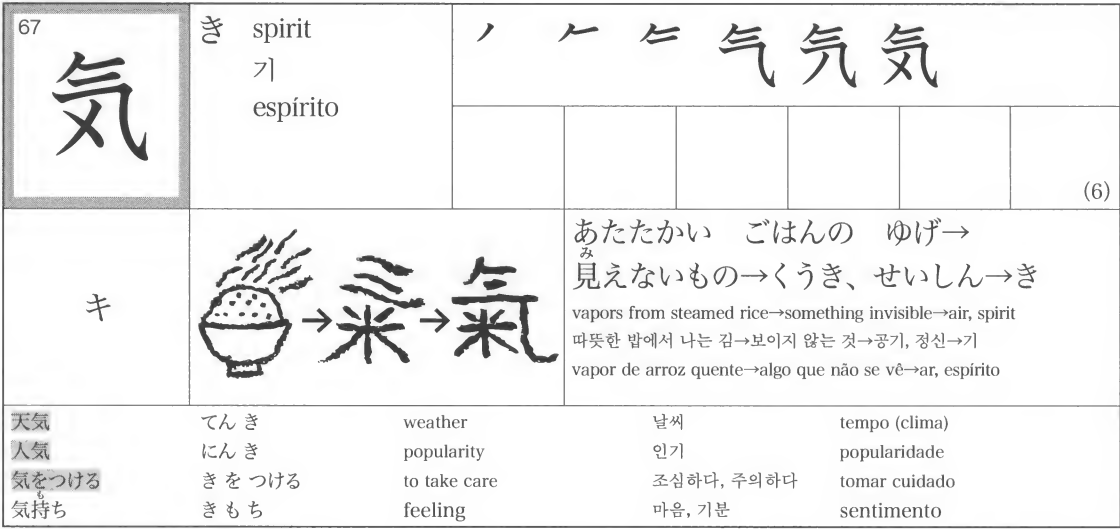 67
気
き spirit
기
espírito
丿 𠂉 气 気
(6)
キ
あたたかい ごはんの ゆげ→
み
見えないもの→くうき、せいしん→き
vapors from steamed rice→something invisible→air, spirit
따뜻한 밥에서 나는 김→보이지 않는 것→공기, 정신→기
vapor de arroz quente→algo que não se vê→ar, espírito
→ 米 → 氣
天気 てん き weather 날씨 tempo (clima)
人気 にん き popularity 인기 popularidade
気をつける き を つける to take care 조심하다, 주의하다 tomar cuidado
も
気持ち き も ち feeling 마음, 기분 sentimento